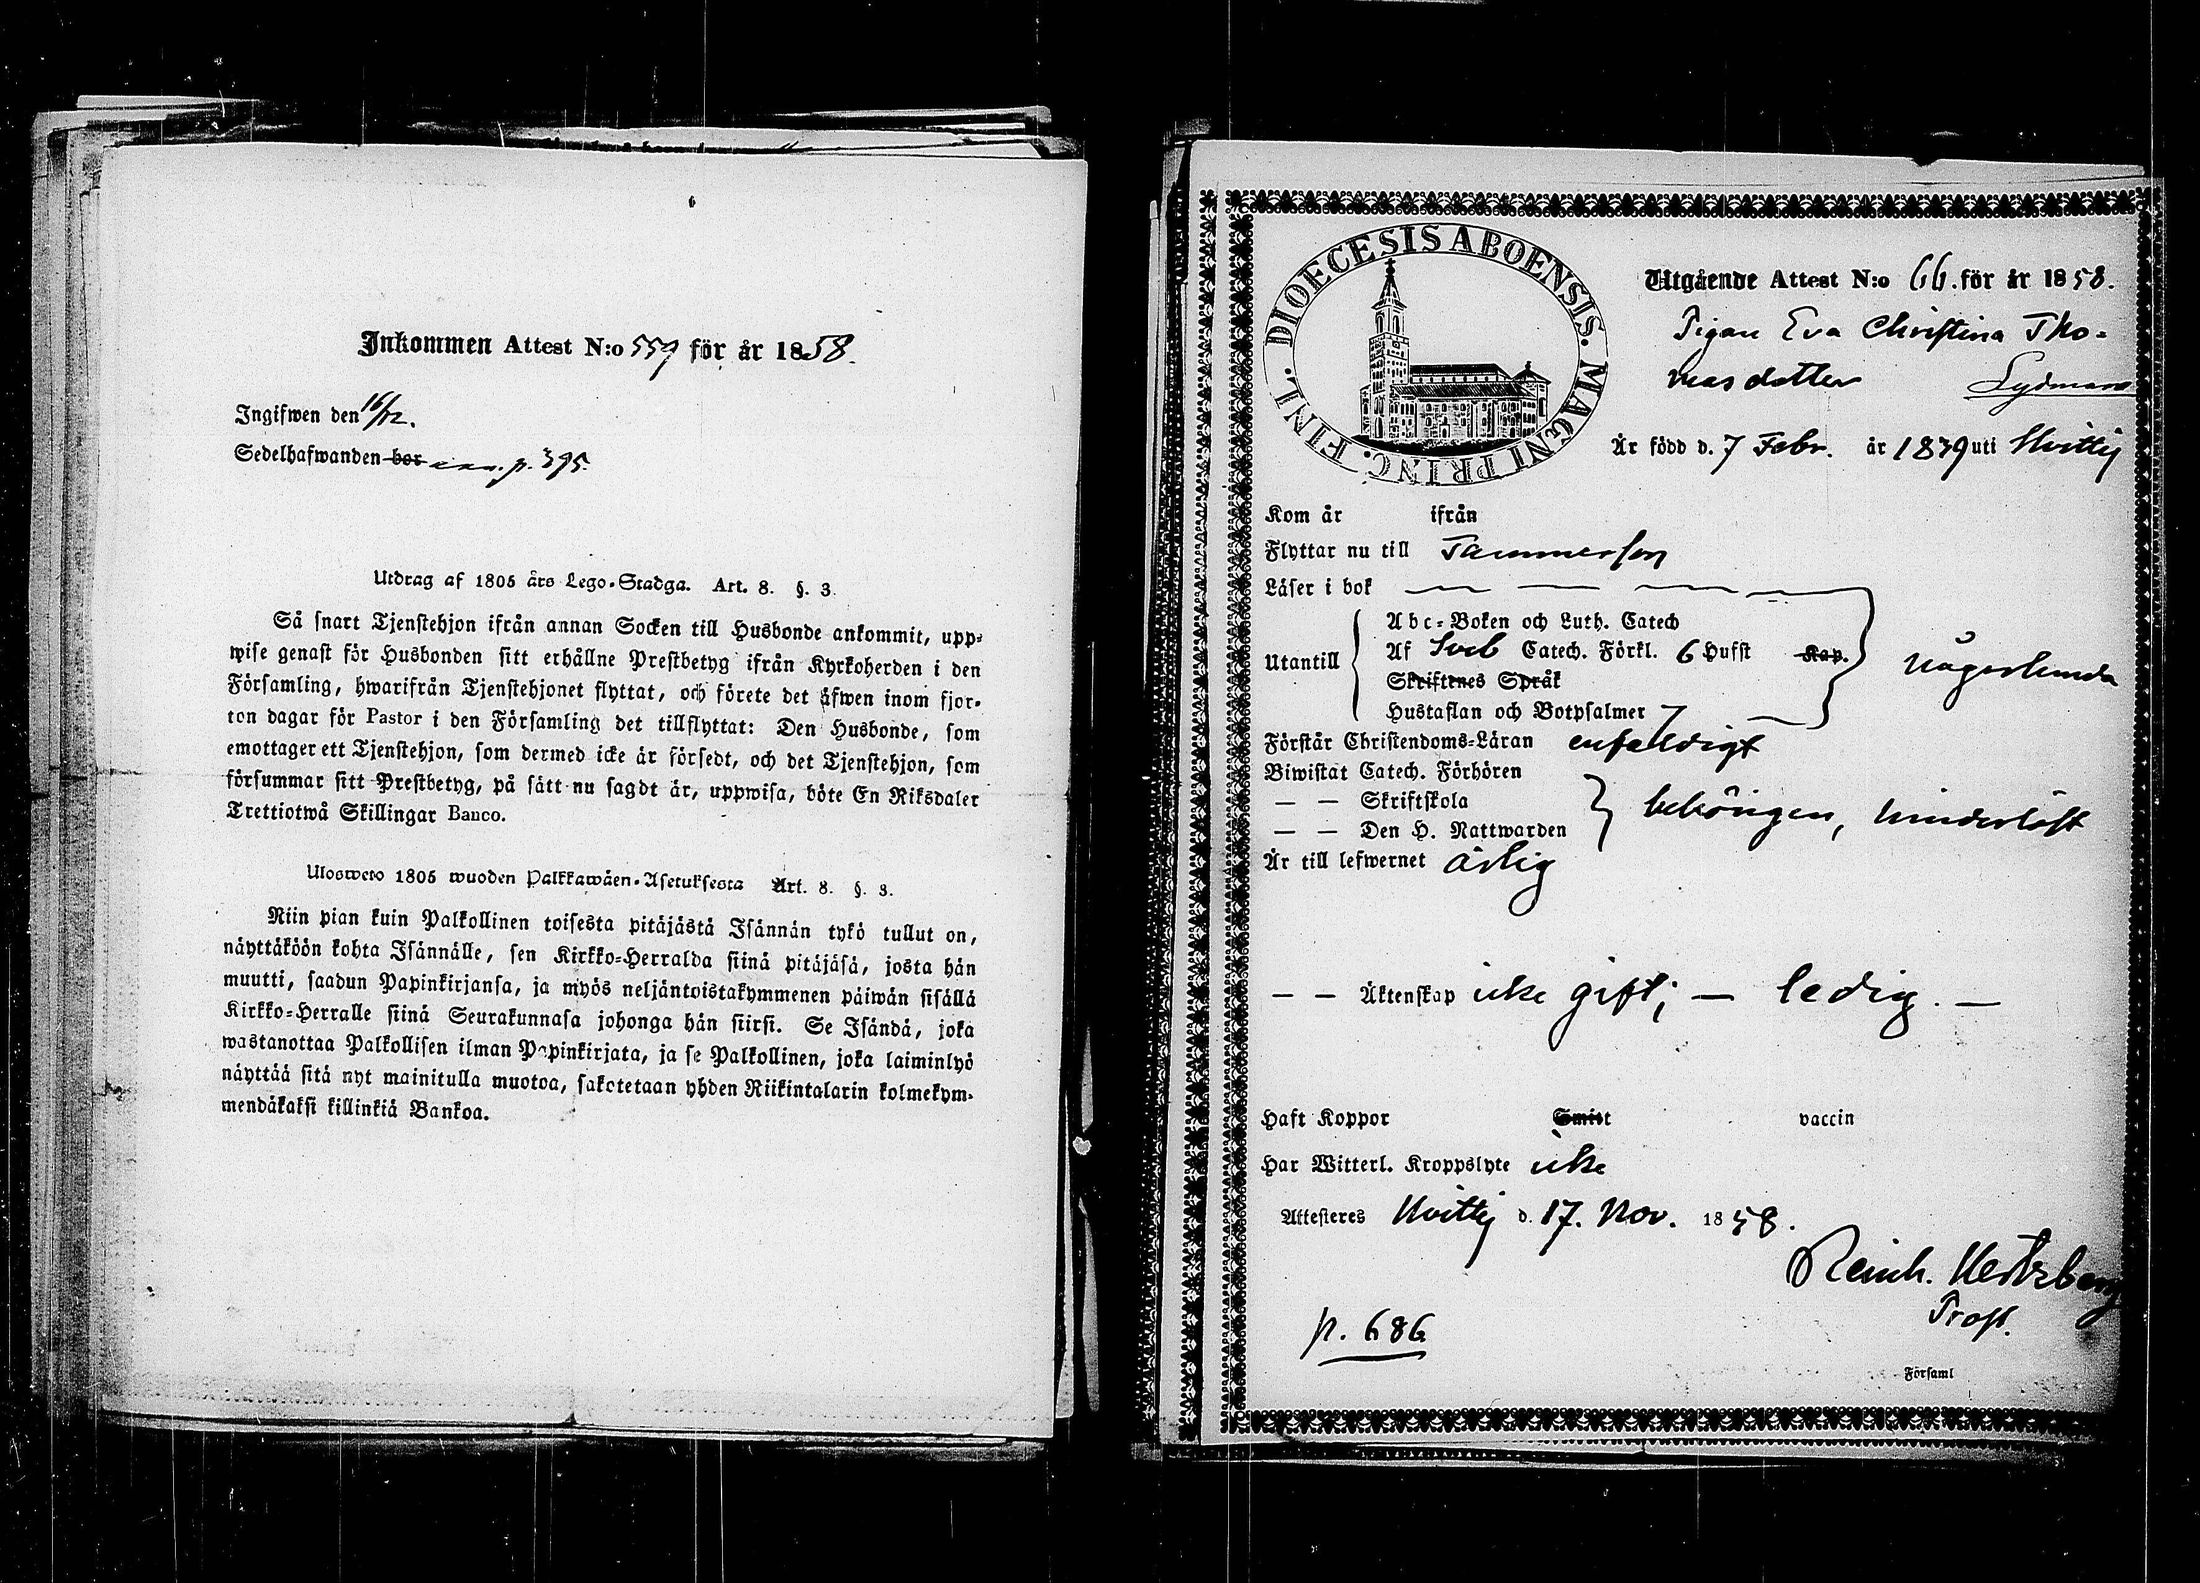 Inkommen Attest N:o 559 för år 1858.
Ingifwen den 16/12.
Sedelhafwanden bor p. 395.
Utdrag af 1805 års Lego-Stadga. Art. 8. §. 3.
Så snart Tjenstehjon ifrån annan Socken till Husbonde ankommit, upp-
wise genast för Husbonden sitt erhållne Prestbetyg ifrån Kyrkoherden i den
Församling, hwarifrån Tjenstehjonet flyttat, och förete det äfwen inom fjor-
ton dagar för Pastor i den Församling det tillflyttat: Den Husbonde, som
emottager ett Tjenstehjon, som dermed icke är försedt, och det Tjenstehjon, som
försummar sitt Prestbetyg, på sätt nu sagdt är, uppwisa, böte En Riksdaler
Trettiotwå Skillingar Banco.
Ulosweto 1805 wuoden Palkkawäen-Asetuksesta Art. 8. §. 3.
Niin pian kuin Palkollinen toisesta pitäjästä Isännän tykö tullut on,
näyttäköön kohta Isännälle, sen Kirkko-Herralda siinä pitäjäsä, josta hän
muutti, saadun Papinkirjansa, ja myös neljäntoistakymmenen päiwän sisällä
Kirkko-Herralle siinä Seurakunnasa johonga hän siirsi. Se Isändä, joka
wastanottaa Palkollisen ilman Papinkirjata, ja se Palkollinen, joka laiminlyö
näyttää sitä nyt mainitulla muotoa, sakotetaan yhden Riikintalarin kolmekym-
mendäkaksi killinkiä Bankoa.
DIOECESIS ABOENSIS. MAGNI PRINC. FINL.
Utgående Attest N:o 66. för år 1858.
Pigan Eva Christina Tho-
masdotter Lydman
Är född d. 7 Febr. år 1839 uti Hvittij
Kom år ifrån
Flyttar nu till Tammerfors
Läser i bok
Abc-Boken och Luth. Catech
Utantill Af Sveb Catech. Förkl. 6 Hufst Kap. någorlunda
Skriftenes Språk
Hustaflan och Botpsalmer 7
Förstår Christendoms-Läran enfaldigt
Biwistat Catech. Förhören
— — Skriftskola behörigen, hinderlöst
— — Den H. Nattwarden
Är till lefwernet ärlig
— — Äktenskap icke gift; — ledig. —
Haft Koppor Smitt vaccin
Har Witterl. Kroppslyte icke
Attesteres Hvittij d. 17. Nov. 1858.
Reinh. Hertzberg
Prost.
p. 686
Församl